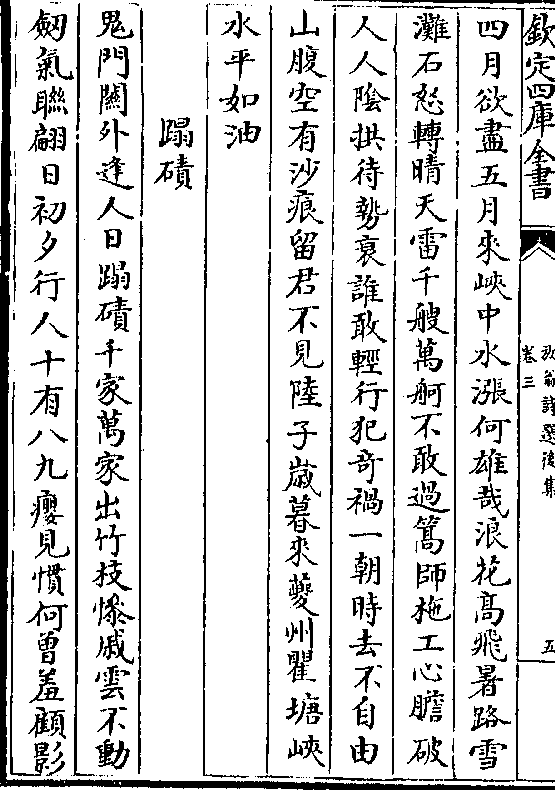 欽定四庫全書
放翁詩選後集
卷三
五
四月欲盡五月來峽中水漲何雄哉浪花髙飛暑路雪
灘石怒轉晴天雷千艘萬舸不敢過篙師柂工心膽破
人人陰拱待勢衰誰敢輕行犯奇禍一朝時去不自由
山腹空有沙痕留君不見陸子歳暮來夔州瞿塘峽
水平如油
蹋磧
鬼門闗外逢人日蹋磧千家萬家出竹枝慘戚雲不動
劒氣聯翩日初夕行人十有八九癭見慣何曾羞顧影